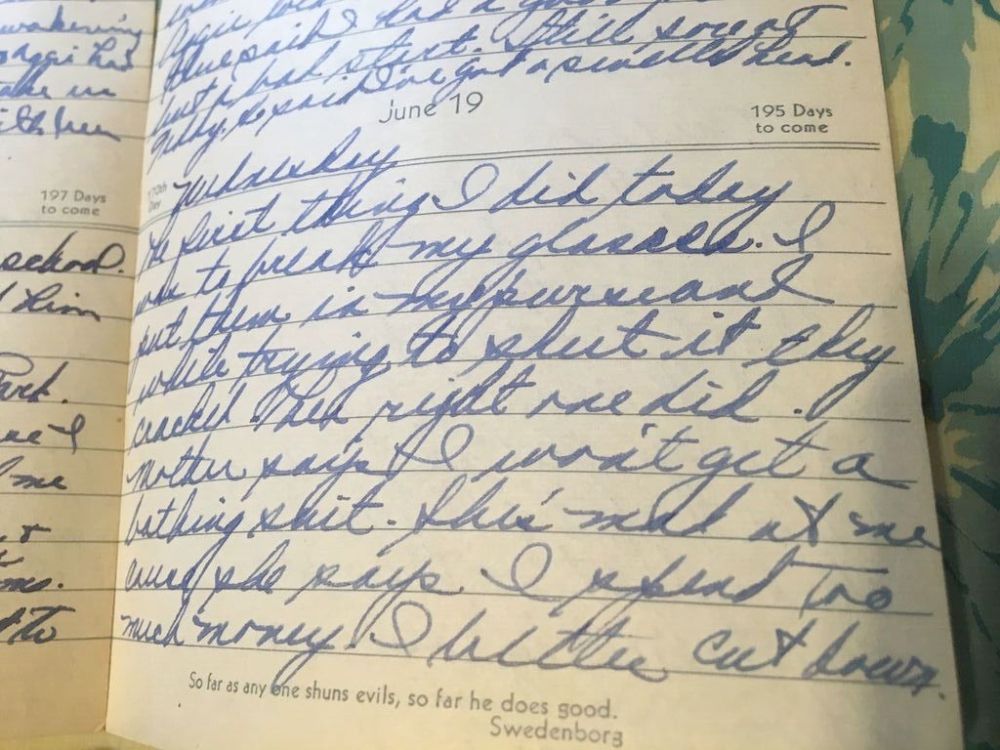 awakening
had
take in
with her
197 Days
to come
school.
him
Park.
I
me
to
blue said I had a good
but a bad start. Still sore at
he said I've got a swelled head.
June 19
195 Days
to come
170th
Day
Wednesday
The first thing I did today
was to break my glasses. I
put them in my purse and
while trying to shut it they
cracked. The right one did.
Mother says I won't get a
bathing suit. She's mad at me
cause she says I spend too
much money. I better cut down.
So far as any one shuns evils, so far he does good.
Swedenborg